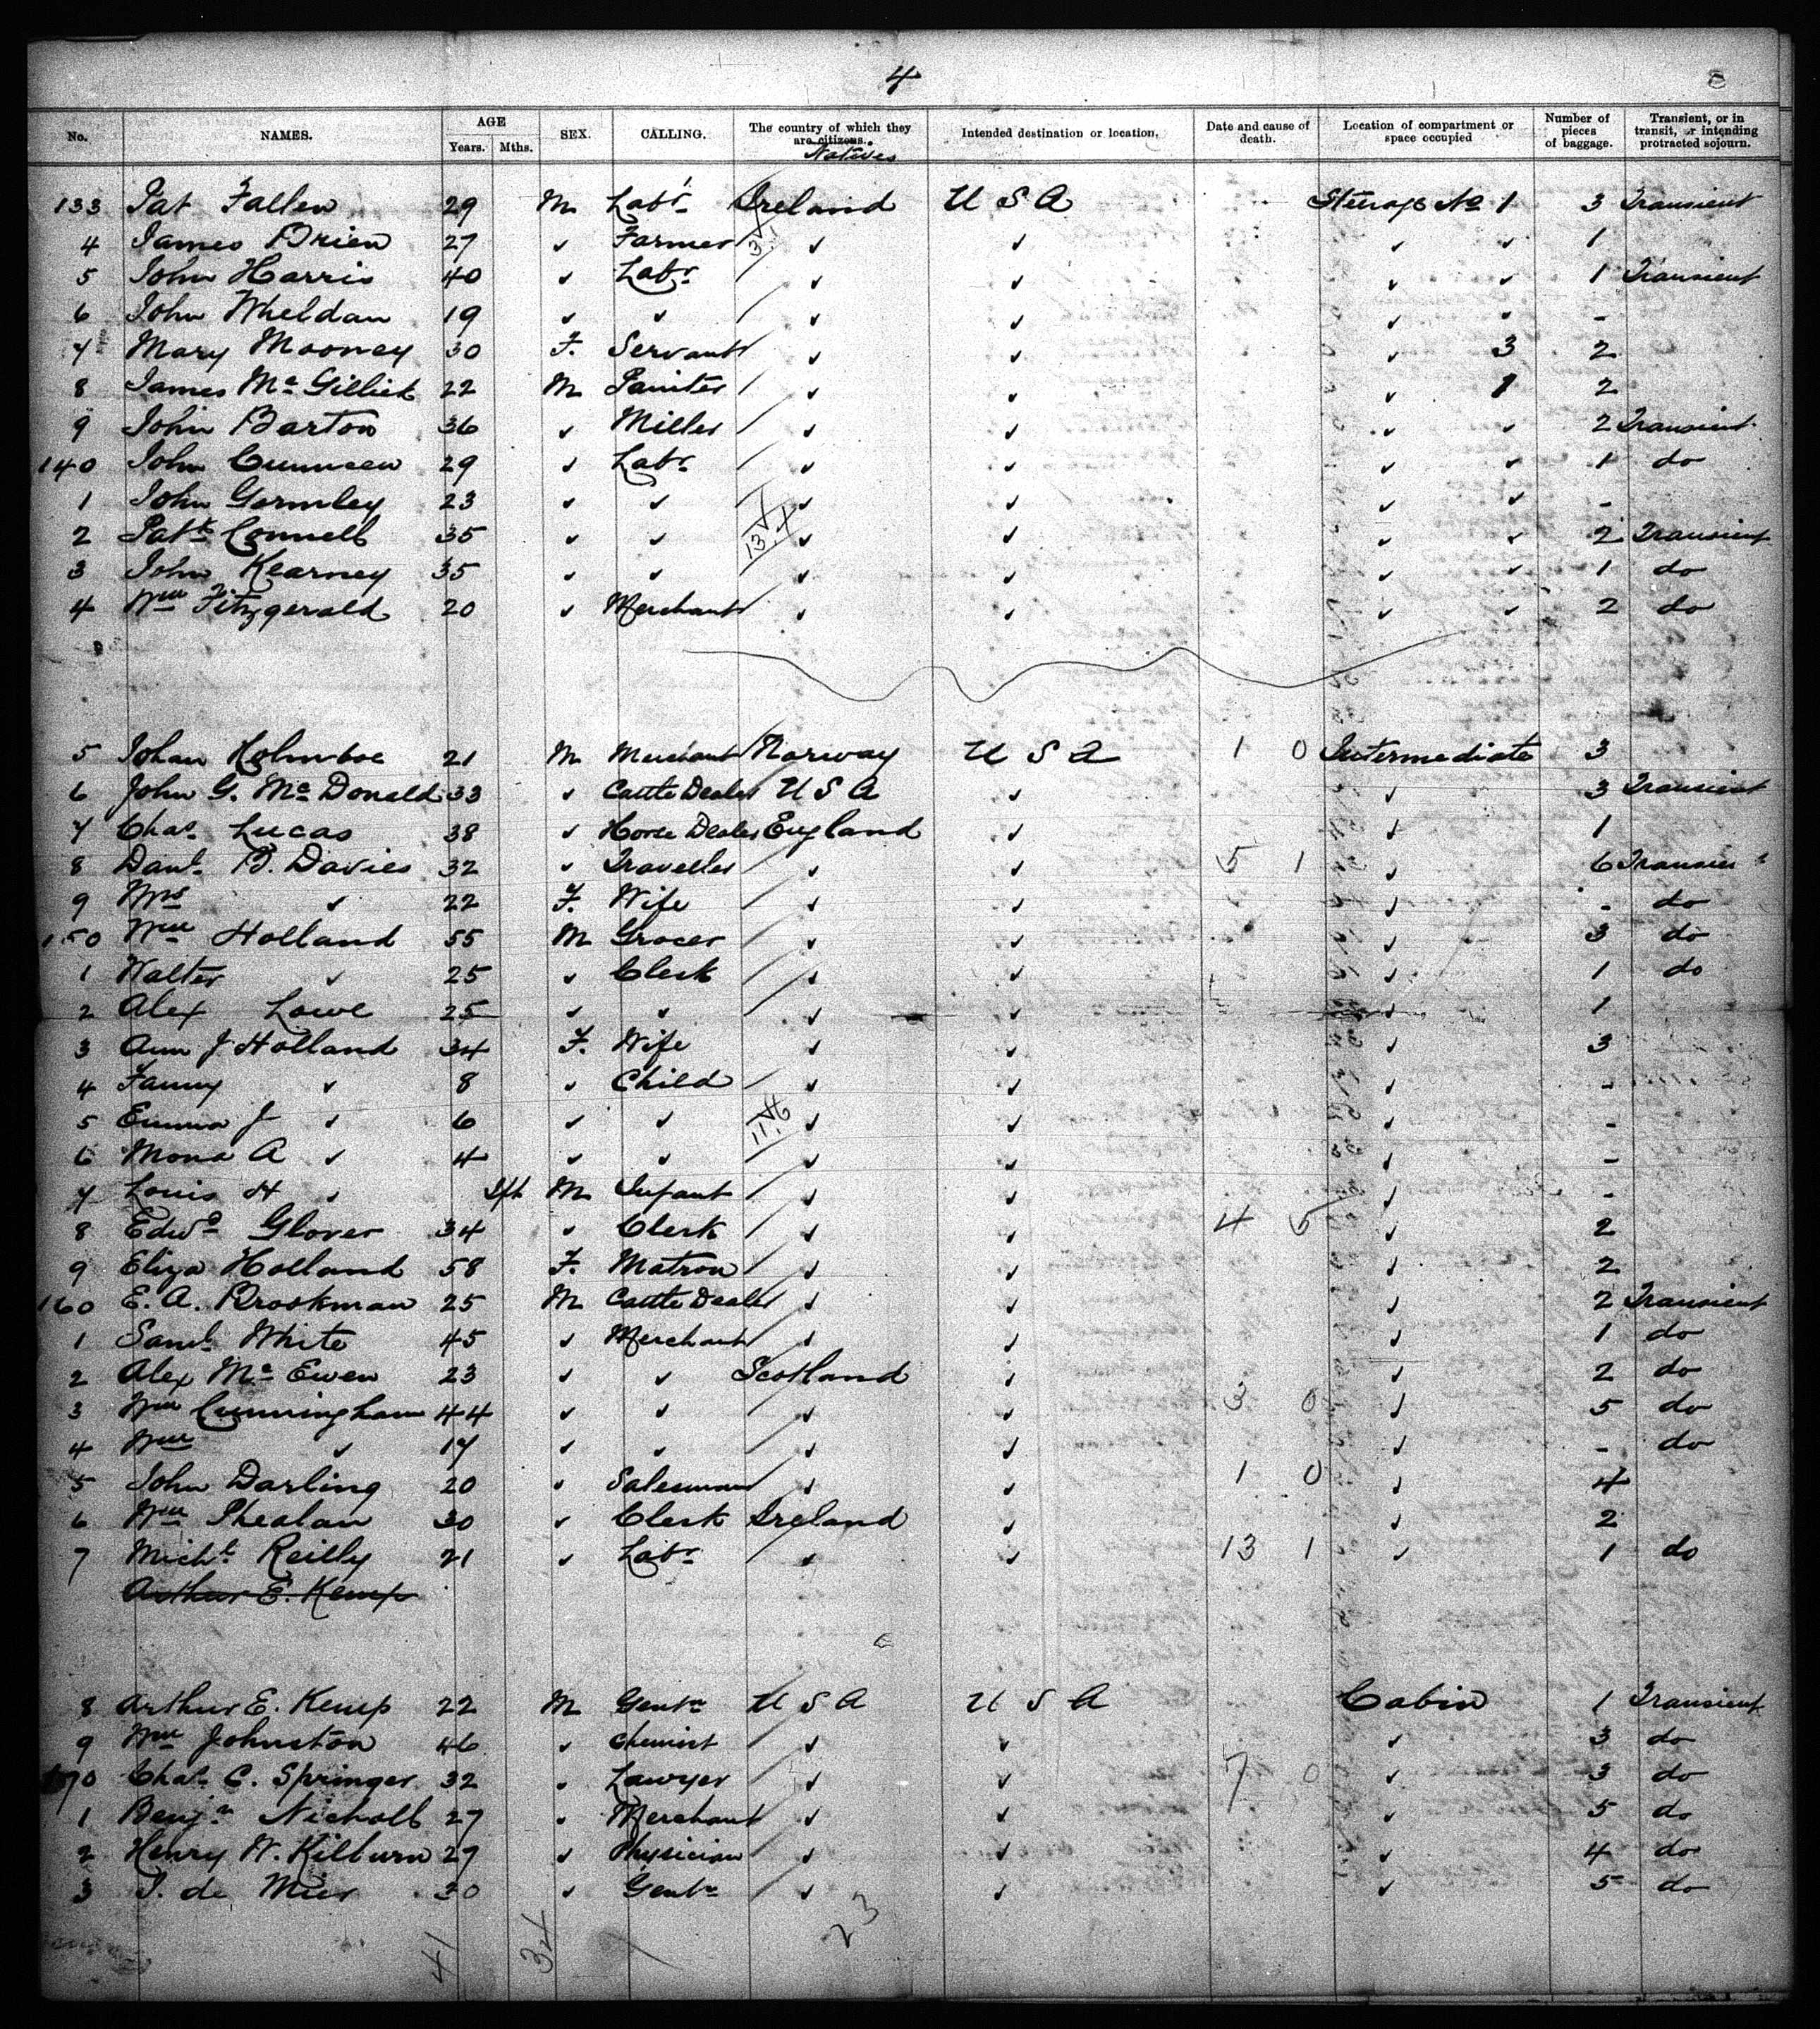 4 8
No. NAMES. AGE Years. Mths. SEX. CALLING. The country of which they are citizens. Natives Intended destination or location. Date and cause of death. Location of compartment or space occupied Number of pieces of baggage. Transient, or in transit, or intending protracted sojourn.
133 Pat Fallen 29 M Labr Ireland U S A Steerage No 1 3 Transient
4 James Brien 27 ✓ Farmer ✓ ✓ ✓ ✓ 1
5 John Harris 40 ✓ Labr ✓ ✓ ✓ ✓ 1 Transient
6 John Wheldan 19 ✓ ✓ ✓ ✓ ✓ ✓ -
7 Mary Mooney 30 F. Servant ✓ ✓ ✓ 3 2
8 James Mc Gillick 22 M Painter ✓ ✓ ✓ 1 2
9 John Barton 36 ✓ Miller ✓ ✓ ✓ ✓ 2 Transient
140 John 29 ✓ Labr ✓ ✓ ✓ ✓ 1 do
1 John Gormley 23 ✓ ✓ ✓ ✓ ✓ ✓ -
2 Patk Connell 35 ✓ ✓ 13 4 ✓ ✓ ✓ ✓ 2 Transient
3 John Kearney 35 ✓ ✓ ✓ ✓ ✓ ✓ 1 do
4 Wm Fitzgerald 20 ✓ Merchant ✓ ✓ ✓ ✓ 2 do
5 Johan Holmboe 21 M Merchant Norway U S A 1 0 Intermediate 3
6 John G. Mc Donald 33 ✓ Cattle Dealer U S A ✓ ✓ 3 Transient
7 Chas Lucas 38 ✓ Horse Dealer England ✓ ✓ 1
8 Danl B. Davies 32 ✓ Traveller ✓ ✓ 5 1 ✓ 6 Transient
9 Mrs ✓ 22 F. Wife ✓ ✓ ✓ - do
150 Wm Holland 55 M Grocer ✓ ✓ ✓ 3 do
1 Walter ✓ 25 ✓ Clerk ✓ ✓ ✓ 1 do
2 Alex Lowe 25 ✓ ✓ ✓ ✓ ✓ 1
3 Ann J Holland 34 F. Wife ✓ ✓ ✓ 3
4 Fanny ✓ 8 ✓ Child ✓ ✓ ✓ -
5 Emma J ✓ 6 ✓ ✓ 11 6 ✓ ✓ ✓ -
6 Mona A ✓ 4 ✓ ✓ ✓ ✓ ✓ -
7 Louis H ✓ M Infant ✓ ✓ ✓ -
8 Edwd Glover 34 ✓ Clerk ✓ ✓ 4 5 ✓ 2
9 Eliza Holland 58 F. Matron ✓ ✓ ✓ 2
160 E. A. Brookman 25 M Cattle Dealer ✓ ✓ ✓ 2 Transient
1 Saml White 45 ✓ Merchant ✓ ✓ ✓ 1 do
2 Alex Mc Ewen 23 ✓ ✓ Scotland ✓ ✓ 2 do
3 Wm Cunningham 44 ✓ ✓ ✓ ✓ 3 0 ✓ 5 do
4 Wm ✓ 17 ✓ ✓ ✓ ✓ ✓ - do
5 John Darling 20 ✓ Salesman ✓ ✓ 1 0 ✓ 4
6 Wm Phealan 30 ✓ Clerk Ireland ✓ ✓ 2
7 Michl Reilly 21 ✓ Labr ✓ ✓ 13 1 ✓ 1 do
Arthur E. Kemp
8 Arthur E. Kemp 22 M Gentn U S A U S A Cabin 1 Transient
9 Wm Johnston 46 ✓ Chemist ✓ ✓ ✓ 3 do
170 Chas C. Springer 32 ✓ Lawyer ✓ ✓ 7 0 ✓ 3 do
1 Benjn Nicholl 27 ✓ Merchant ✓ ✓ ✓ 5 do
2 Henry W. Kilburn 27 ✓ Physician ✓ ✓ ✓ 4 do
3 J. de Mier 30 ✓ Gentn ✓ ✓ ✓ 5 do
41 34 23